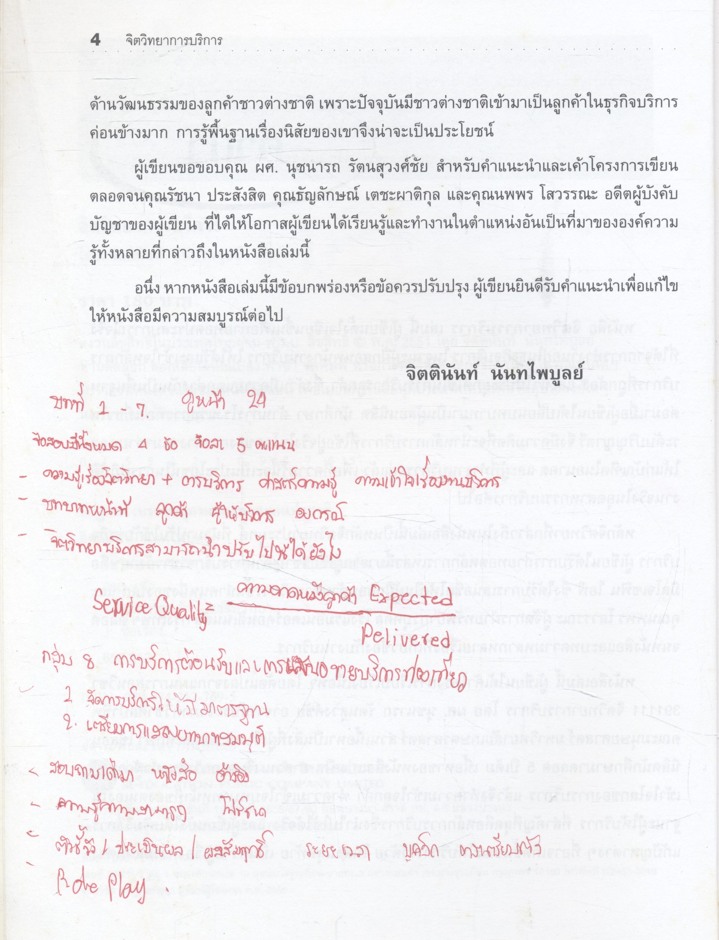 4 จิตวิทยาการบริการ
ด้านวัฒนธรรมของลูกค้าชาวต่างชาติ เพราะปัจจุบันมีชาวต่างชาติเข้ามาเป็นลูกค้าในธุรกิจบริการ
ค่อนข้างมาก การรู้พื้นฐานเรื่องนิสัยของเขาจึงน่าจะเป็นประโยชน์
ผู้เขียนขอขอบคุณ ผศ. นุชนารถ รัตนสุวงศ์ชัย สำหรับคำแนะนำและเค้าโครงการเขียน
ตลอดจนคุณรัชนา ประสังสิต คุณธัญลักษณ์ เตชะผาติกุล และคุณนพพร โสวรรณะ อดีตผู้บังคับ
บัญชาของผู้เขียน ที่ได้ให้โอกาสผู้เขียนได้เรียนรู้และทำงานในตำแหน่งอันเป็นที่มาขององค์ความ
รู้ทั้งหลายที่กล่าวถึงในหนังสือเล่มนี้
อนึ่ง หากหนังสือเล่มนี้มีข้อบกพร่องหรือข้อควรปรับปรุง ผู้เขียนยินดีรับคำแนะนำเพื่อแก้ไข
ให้หนังสือมีความสมบูรณ์ต่อไป
จิตตินันท์ นันทไพบูลย์
บทที่ 1 - 7. ดูหน้า 24
ข้อสอบมีทั้งหมด 4 ข้อ ข้อละ 5 คะแนน
- ความรู้เรื่องจิตวิทยา + การบริการ ความเข้าใจเรื่องงานบริการ
- บทบาทหน้าที่ ลูกค้า ผู้ให้บริการ องค์กร
- จิตวิทยาบริการสามารถนำปรับไปใช้ได้ยังไง
Service Quality = ความคาดหวังลูกค้า Expected
Delivered
กลุ่ม 8. การบริการต้อนรับและการ
1. จัดการบริการให้ได้มาตรฐาน
2. เตรียมการแสดงบทบาทสมมุติ
- หนังสือ
- ความรู้ความสามารถ
- ระยะเวลา
- Role Play.